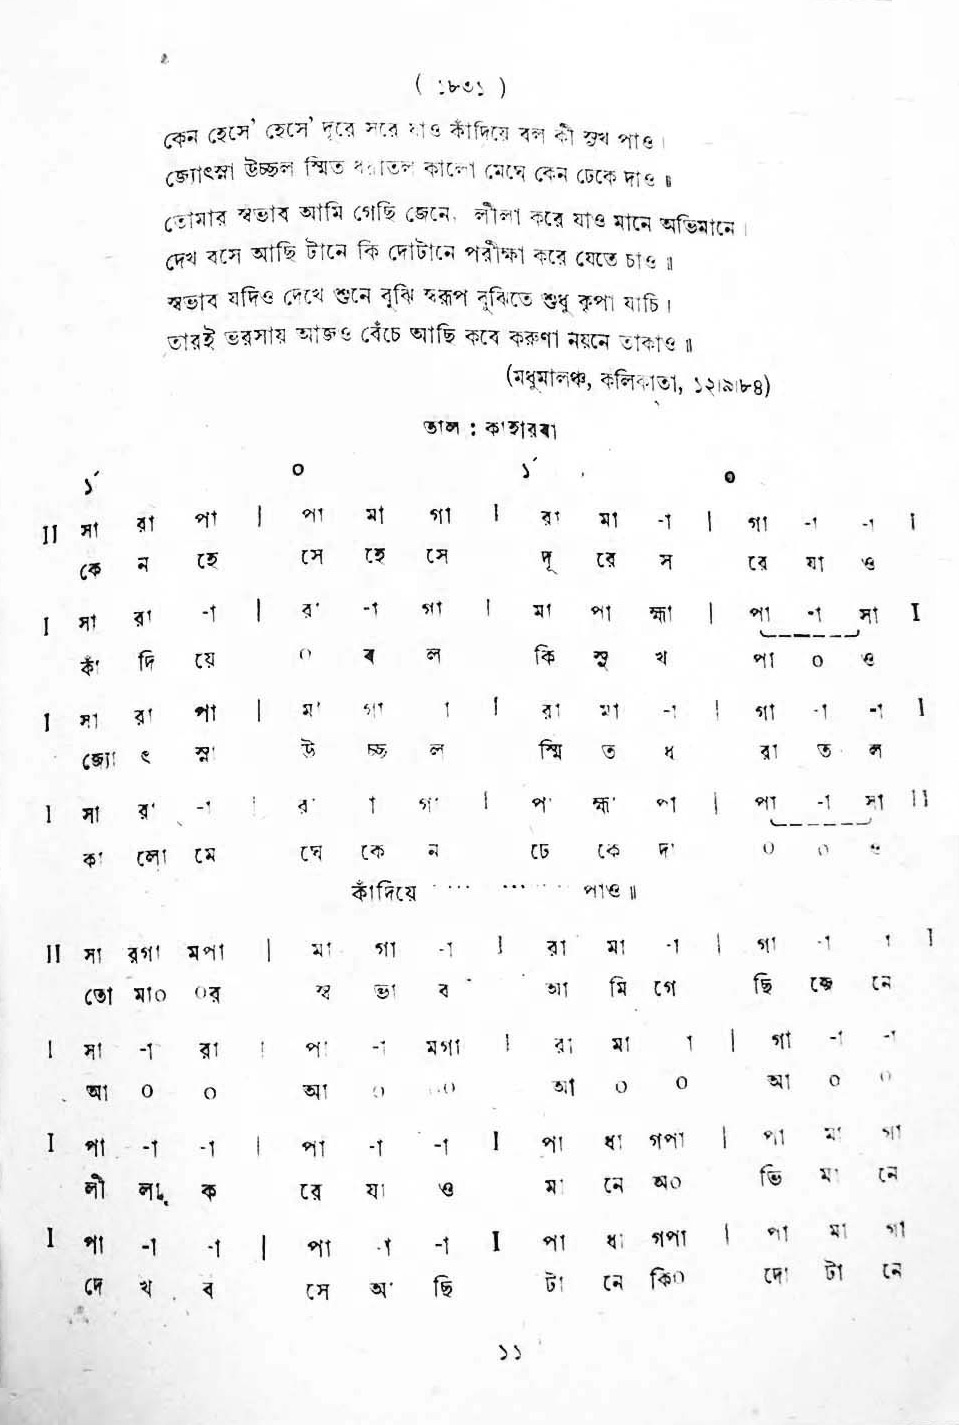 ( ১৮৩১ )
কেন হেসে' হেসে' দূরে সরে যাও কাঁদিয়ে বল কী সুখ পাও।
জ্যোৎস্না উচ্ছল স্মিত ধরাতল কালো মেঘে কেন ঢেকে দাও॥
তোমার স্বভাব আমি গেছি জেনে, লীলা করে যাও মানে অভিমানে।
দেখ বসে আছি টানে কি দোটানে পরীক্ষা করে যেতে চাও॥
স্বভাব যদিও দেখে শুনে বুঝি স্বরূপ বুঝিতে শুধু কৃপা যাচি।
তারই ভরসায় আজও বেঁচে আছি কবে করুণা নয়নে তাকাও॥
(মধুমালঞ্চ, কলিকাতা, ১২।৯।৮৪)
তাল : কাহারবা
১´ ০ ১´ ০
II সা রা পা | পা মা গা I রা মা -া | গা -া -া I
কে ন হে সে হে সে দূ রে স রে যা ও
I সা রা -া | রা -া গা I মা পা হ্মা | পা -া সা I
কাঁ দি য়ে ০ ব ল কি সু খ পা ০ ও
I সা রা পা | মা গা া I রা মা -া | গা -া -া I
জ্যো ৎ স্না উ চ্ছ ল স্মি ত ধ রা ত ল
I সা রা -া | রা া গা I পা হ্মা পা | পা -া সা II
কা লো মে ঘে কে ন ঢে কে দা ০ ০ ও
কাঁদিয়ে ···· ······ পাও॥
II সা রগা মপা | মা গা -া I রা মা -া | গা -া া I
তো মা০ ০র স্ব ভা ব আ মি গে ছি জে নে
I সা -া রা | পা -া মগা I রা মা া | গা -া -া
আ ০ ০ আ ০ ০০ আ ০ ০ আ ০ ০
I পা -া -া | পা -া -া I পা ধা গপা | পা মা গা
লী লা ক রে যা ও মা নে অ০ ভি মা নে
I পা -া -া | পা -া -া I পা ধা গপা | পা মা গা
দে খ ব সে আ ছি টা নে কি০ দো টা নে
১১